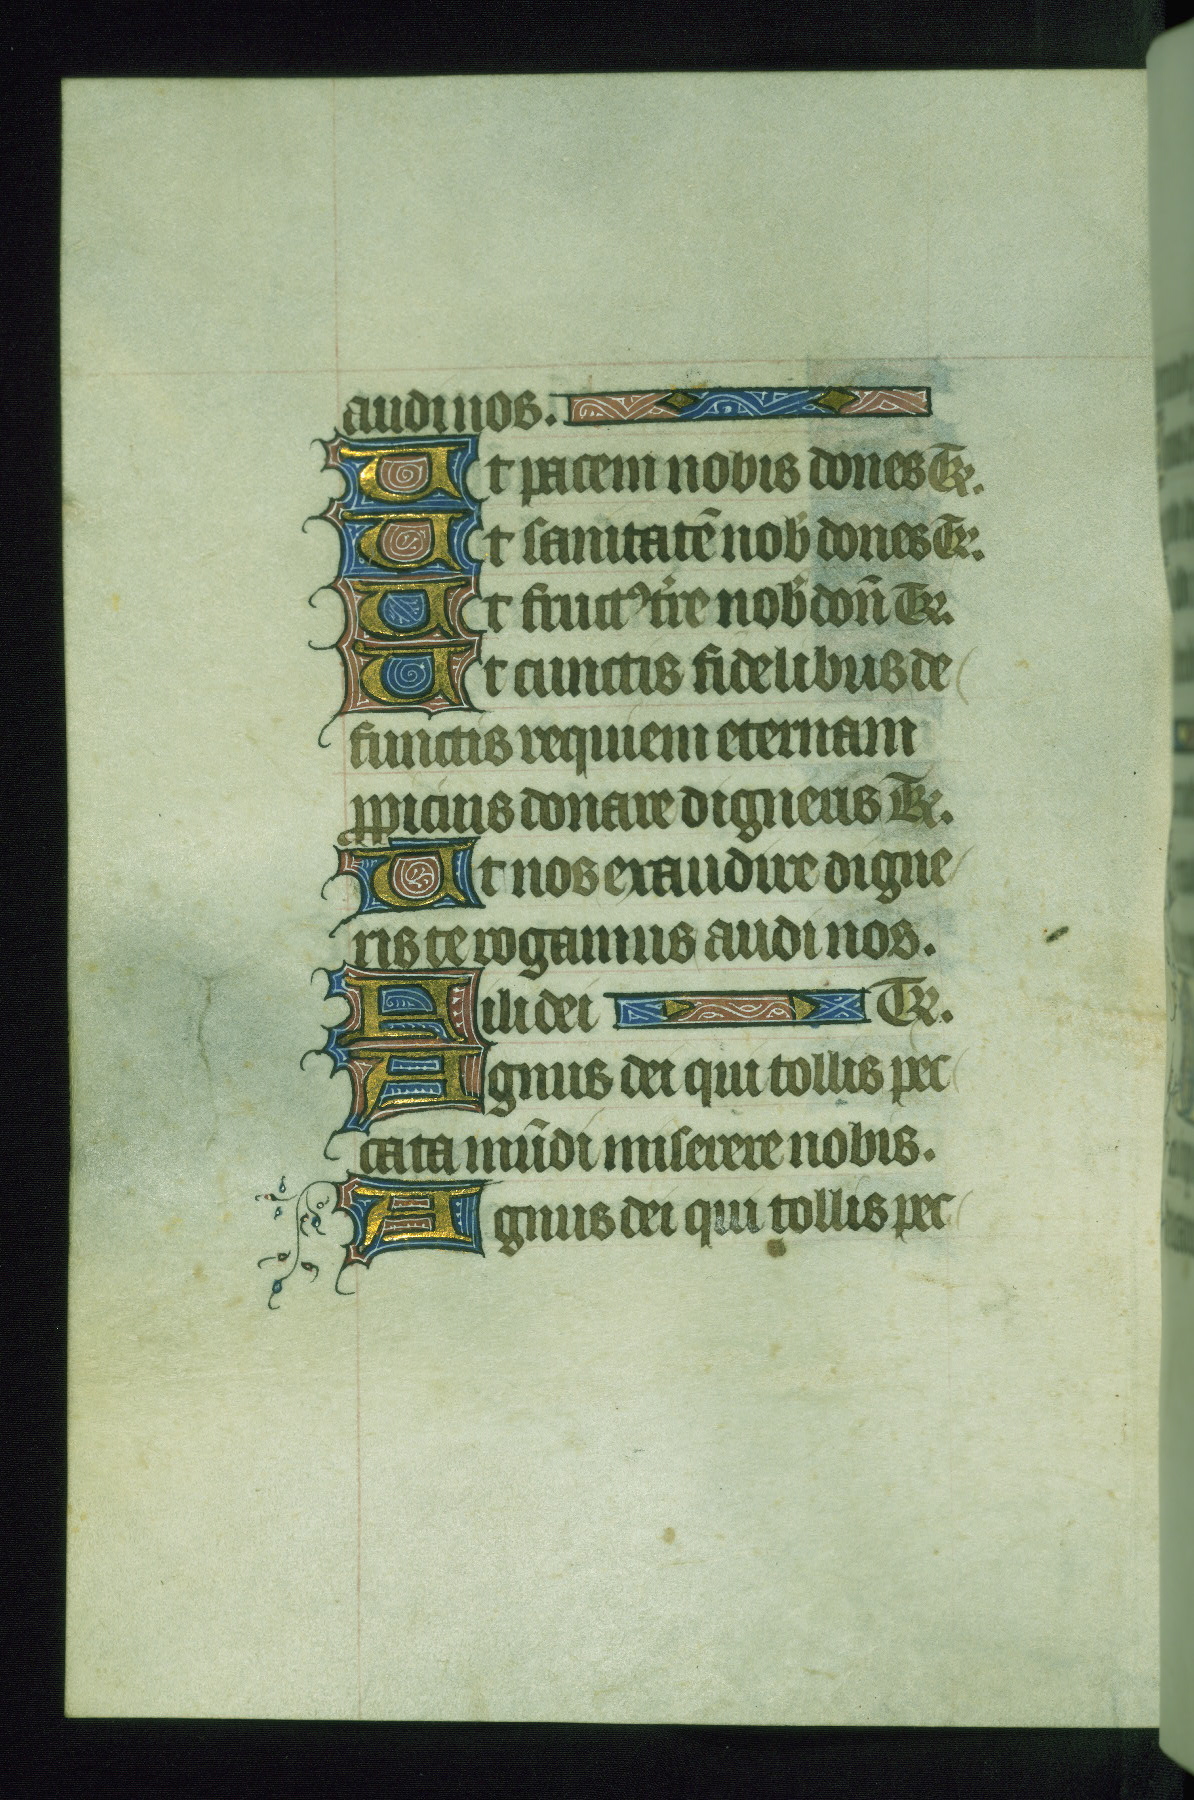 audi nos.
Ut pacem nobis dones Te R.
Ut sanitatē nob̄ dones Te R.
Ut fruct⁹ t͛re nob̄ don̄ Te R.
Ut cunctis fidelibus de
functis requiem eternam
ꝓpicius donare digneris Te R.
Ut nos exaudire digne
ris te rogamus audi nos.
Fili dei Te R.
Agnus dei qui tollis pec
cata mūdi miserere nobis.
Agnus dei qui tollis pec